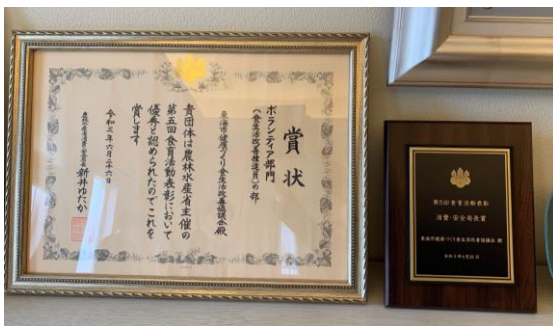 賞状
ボランティア部門
(食生活改善推進員)の部
東海市健康づくり食生活改善協議会殿
貴団体は農林水産省主催の
第五回食育活動表彰において
優秀と認められたのでこれを
賞します
令和三年六月二十六日
農林水産省消費・安全局長 新井ゆたか
第5回食育活動表彰
消費・安全局長賞
東海市健康づくり食生活改善協議会 殿
令和3年6月26日